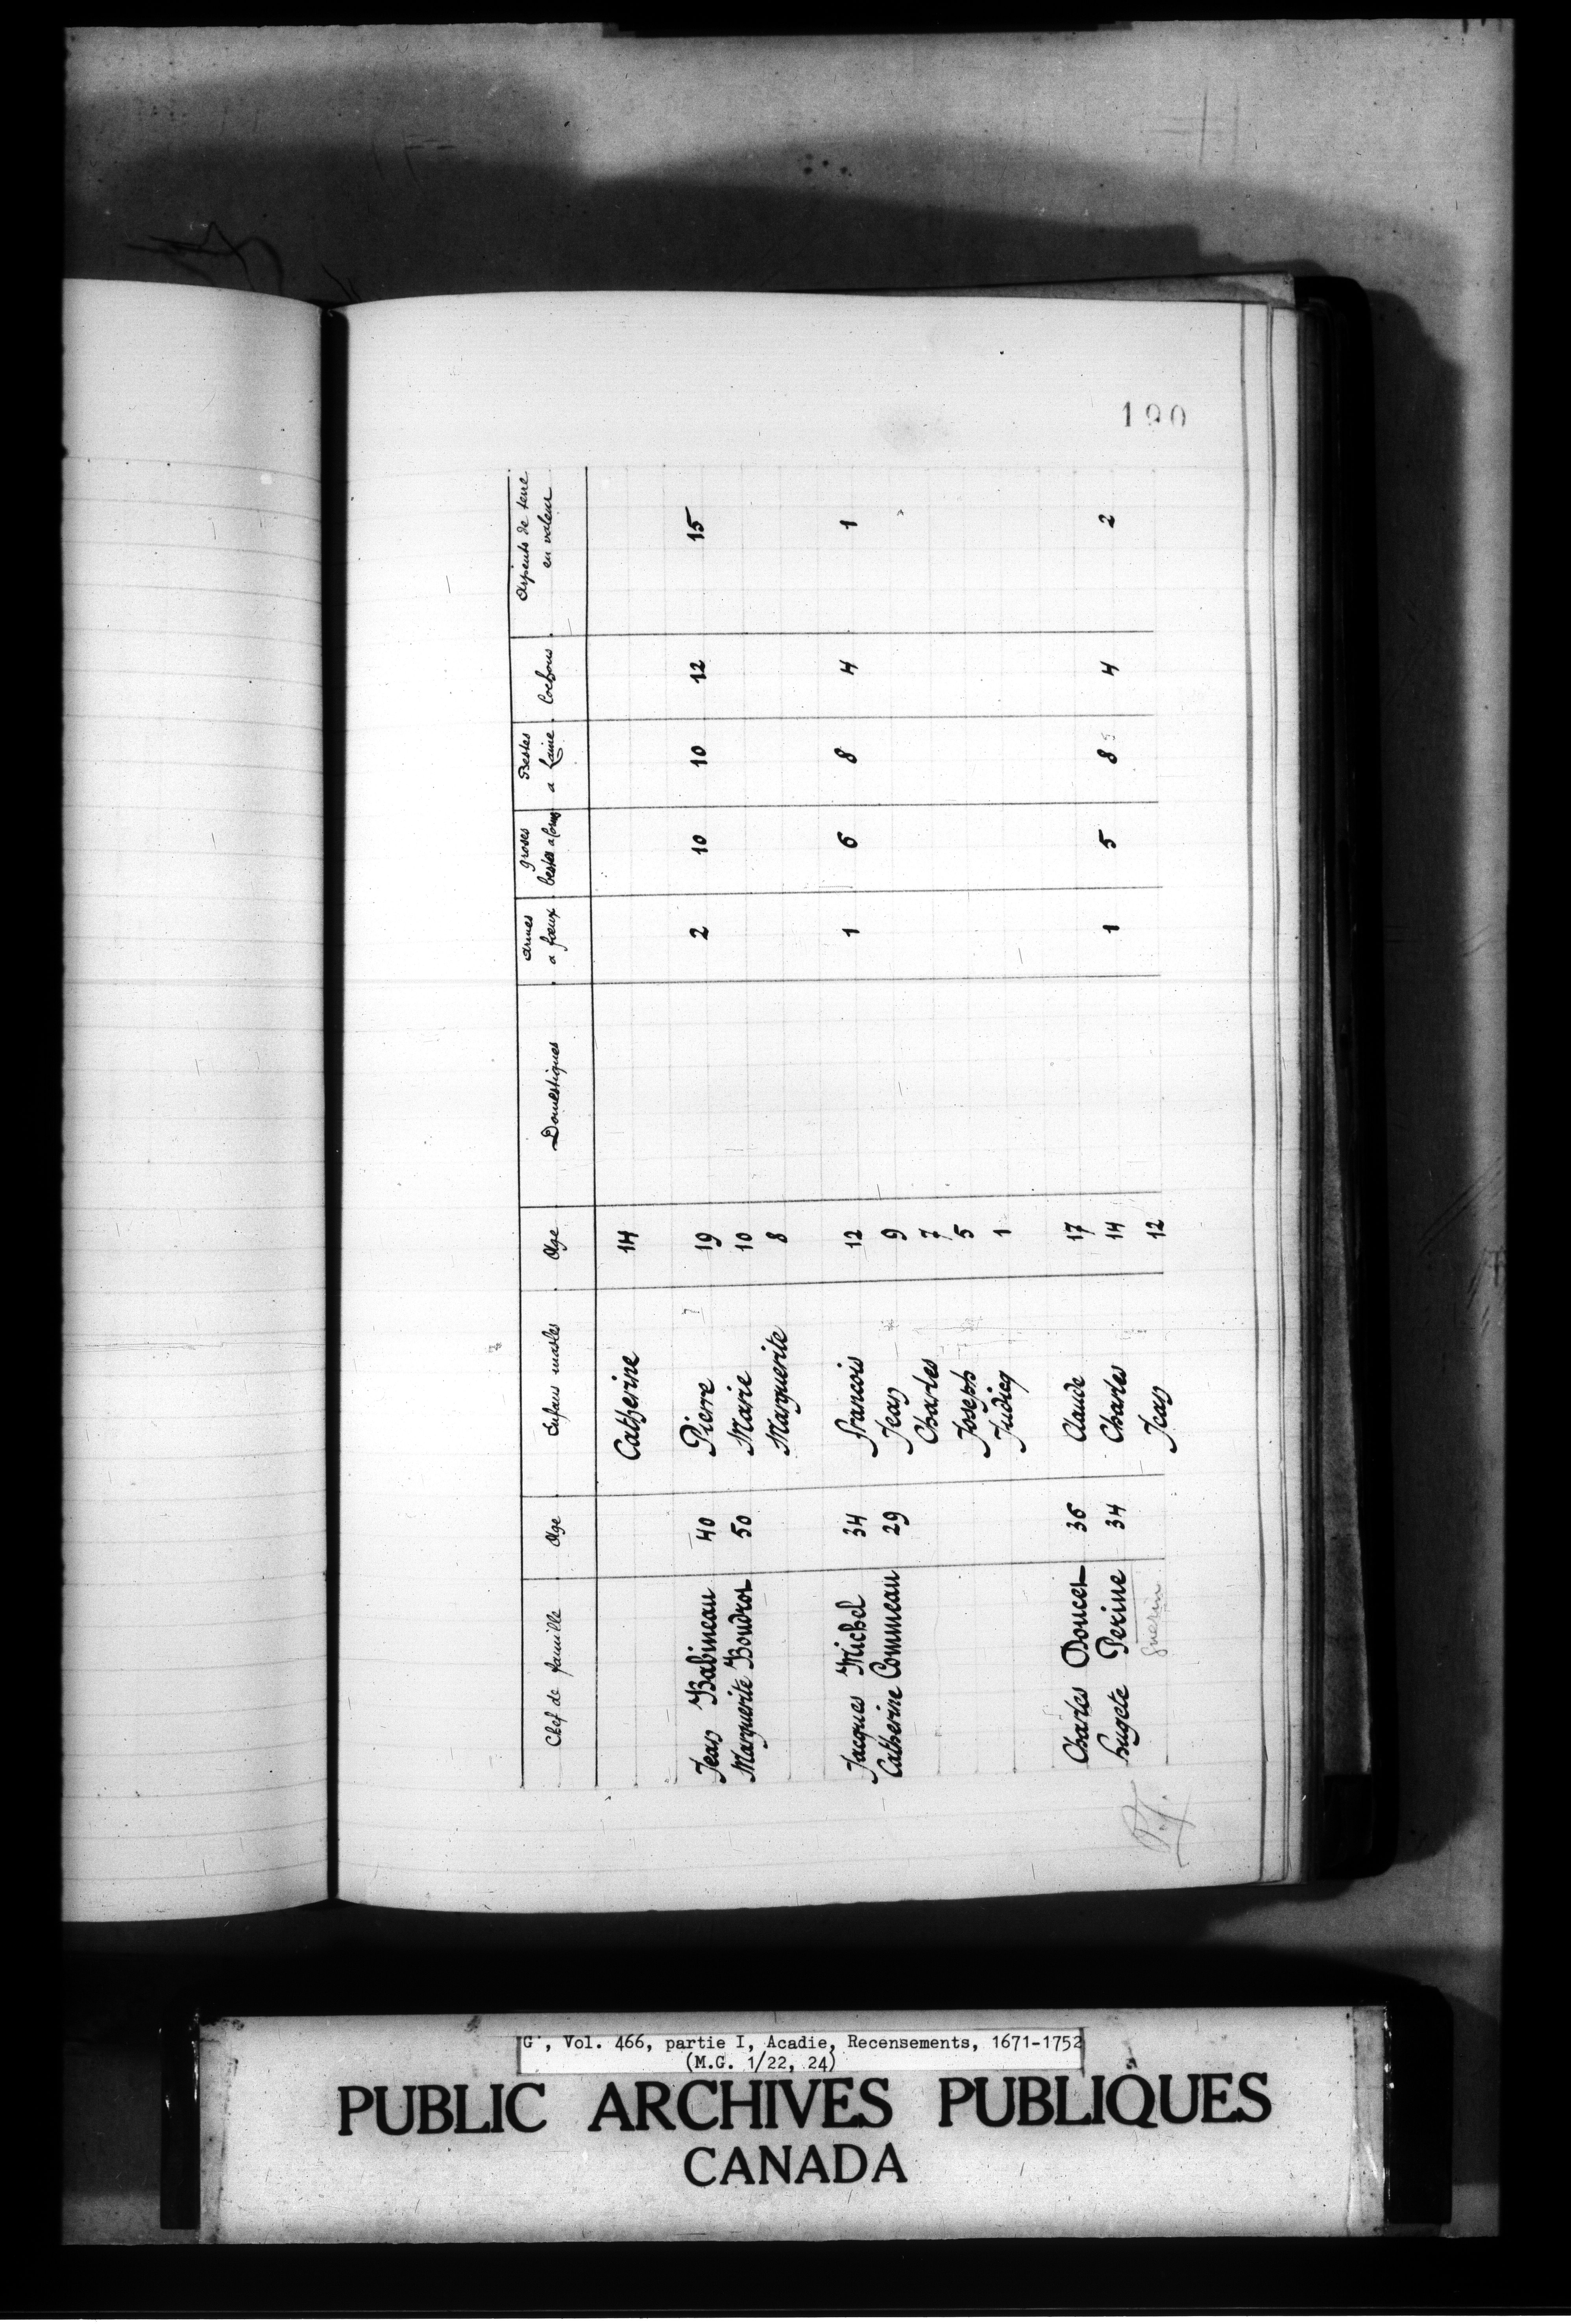 190
Chef de famille Age Enfans masles Age Domestiques armes a foeux groses bestes a cornes Bestes a Laine Cochons arpents de terre en valeur
Catherine 14
Jean Babineau 40 Pierre 19 2 10 10 12 15
Marguerite Boudrot 50 Marie 10
Marguerite 8
Jacques Michel 34 francois 12 1 6 8 4 1
Catherine Commeau 29 Jean 9
Charles 7
Joseph 5
Judicq 1
Charles Doucet 36 Claude 17
hugete Perine 34 Charles 14 1 5 8 4 2
guerin
Jean 12
G¹, Vol. 466, partie I, Acadie, Recensements, 1671-1752
(M.G. 1/22, 24)
PUBLIC ARCHIVES PUBLIQUES
CANADA